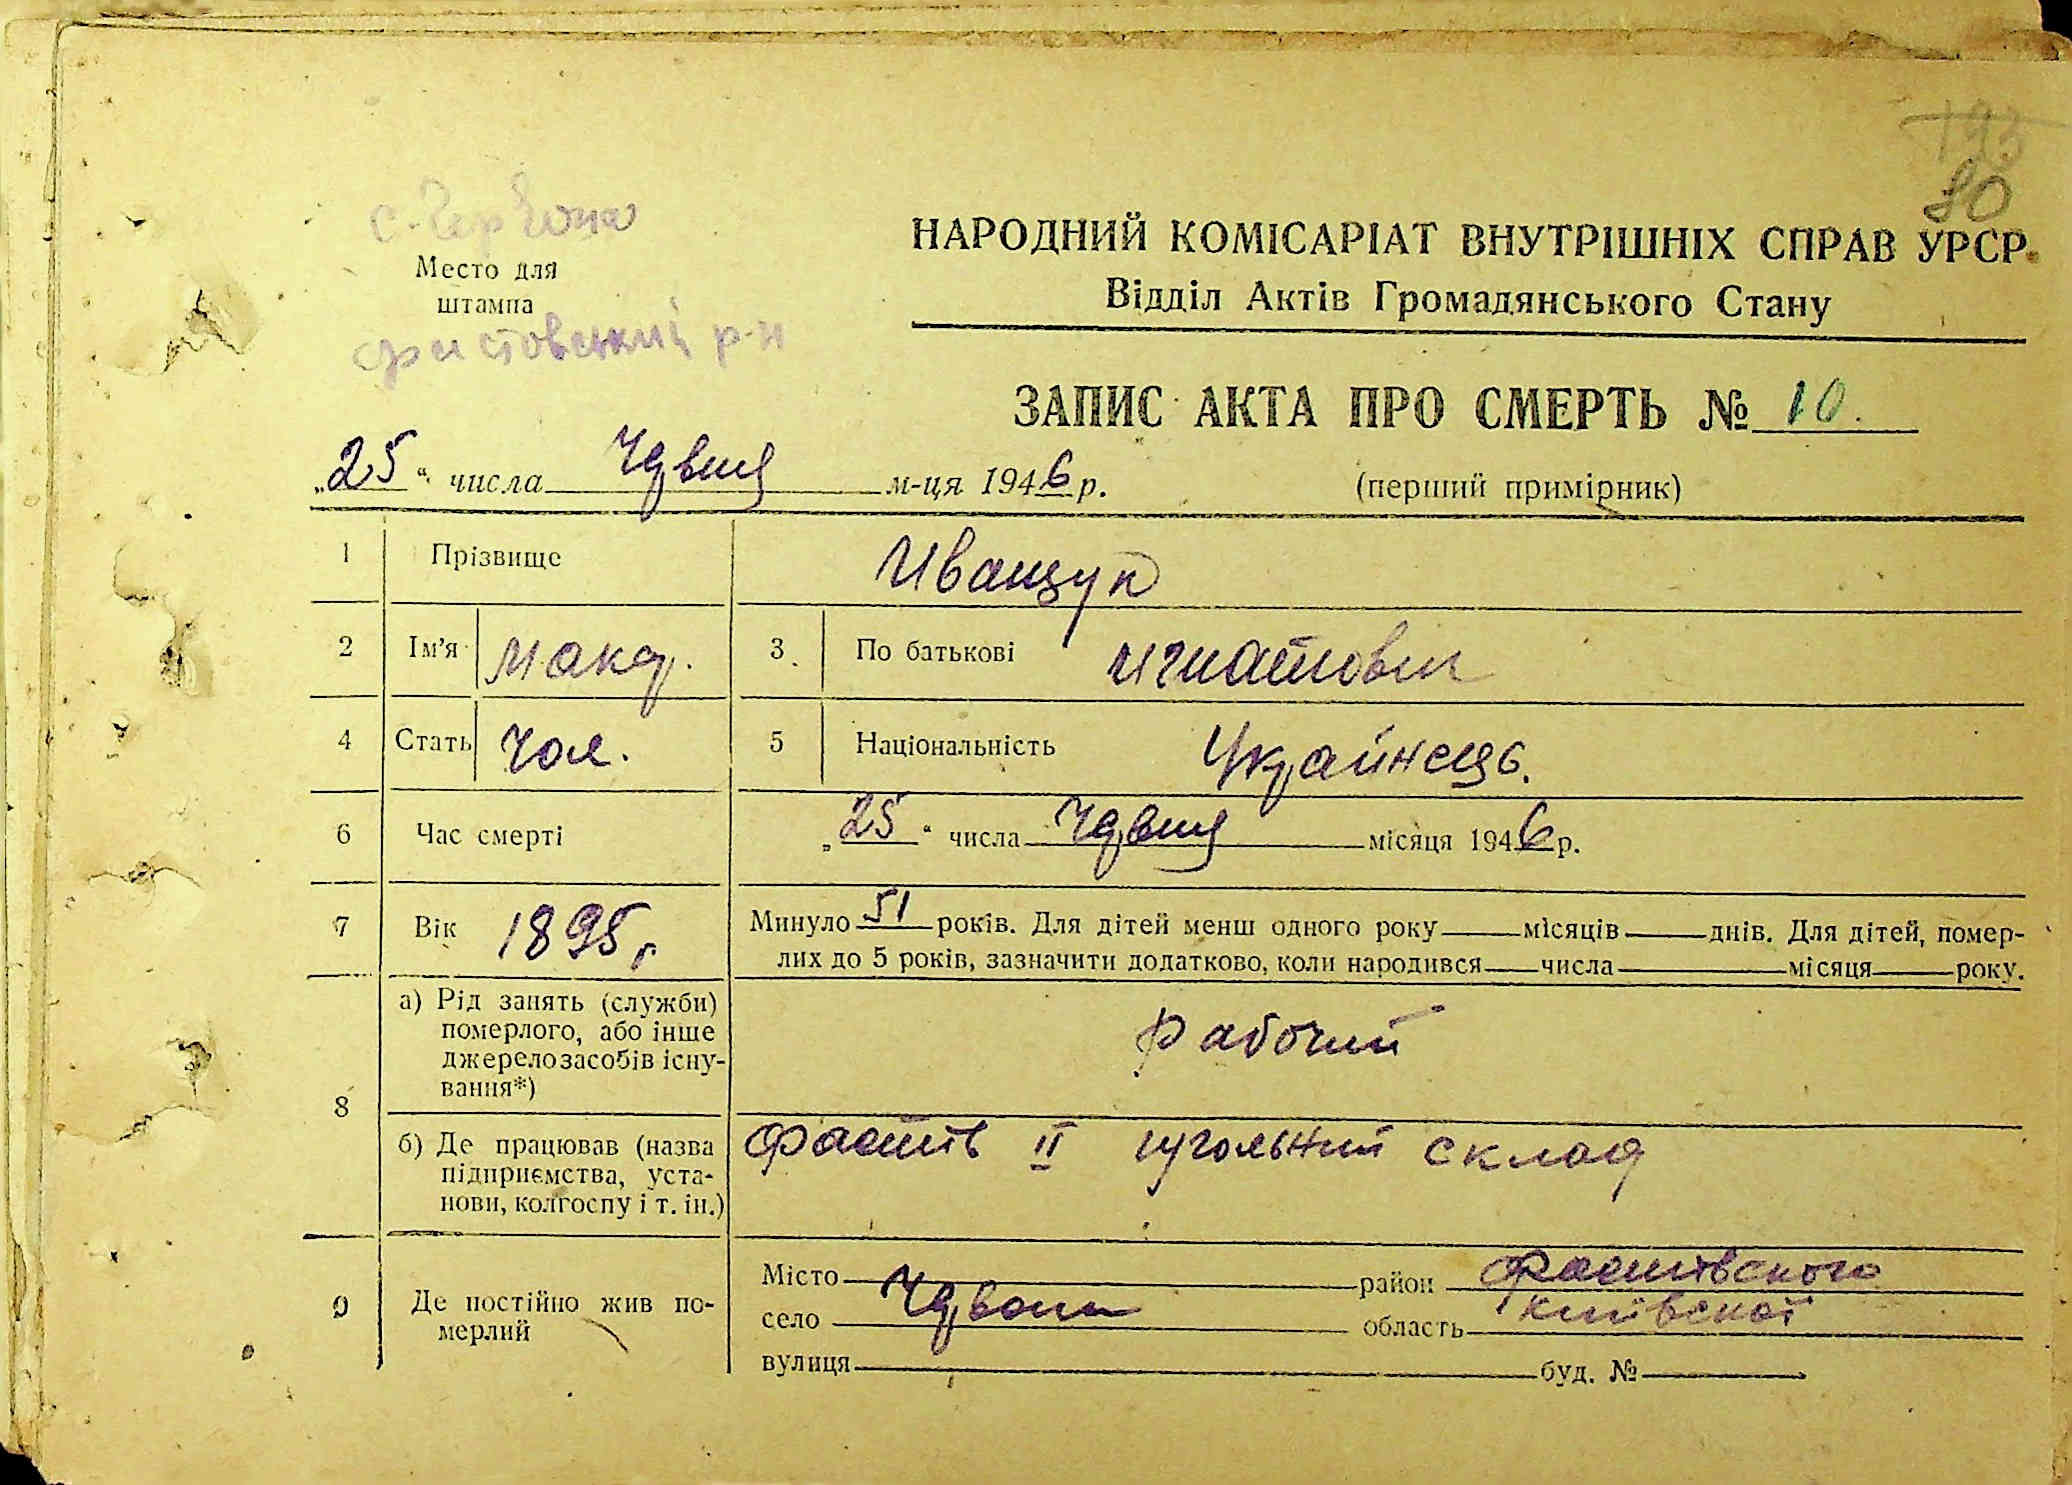 193
80
с. Червона
Место для
штампа
Фастовский р-н
НАРОДНИЙ КОМІСАРІАТ ВНУТРІШНІХ СПРАВ УРСР
Відділ Актів Громадянського Стану
ЗАПИС АКТА ПРО СМЕРТЬ № 10.
„25“ числа Червня м-ця 1946 р.
(перший примірник)
1 Прізвище Иващук
2 Ім’я Макар. 3 По батькові Игнатович
4 Стать Чол. 5 Національність Українець.
6 Час смерті „25“ числа Червня місяця 1946 р.
7 Вік 1895 г. Минуло 51 років. Для дітей менш одного року місяців днів. Для дітей, помер-
лих до 5 років, зазначити додатково, коли народився числа місяця року.
8 а) Рід занять (служби)
померлого, або інше
джерело засобів існу-
вання*)
Рабочий
б) Де працював (назва
підприємства, уста-
нови, колгоспу і т. ін.)
Фастів II угольний склад
9 Де постійно жив по-
мерлий
Місто район Фастівського
село Червона область Київської
вулиця буд. №